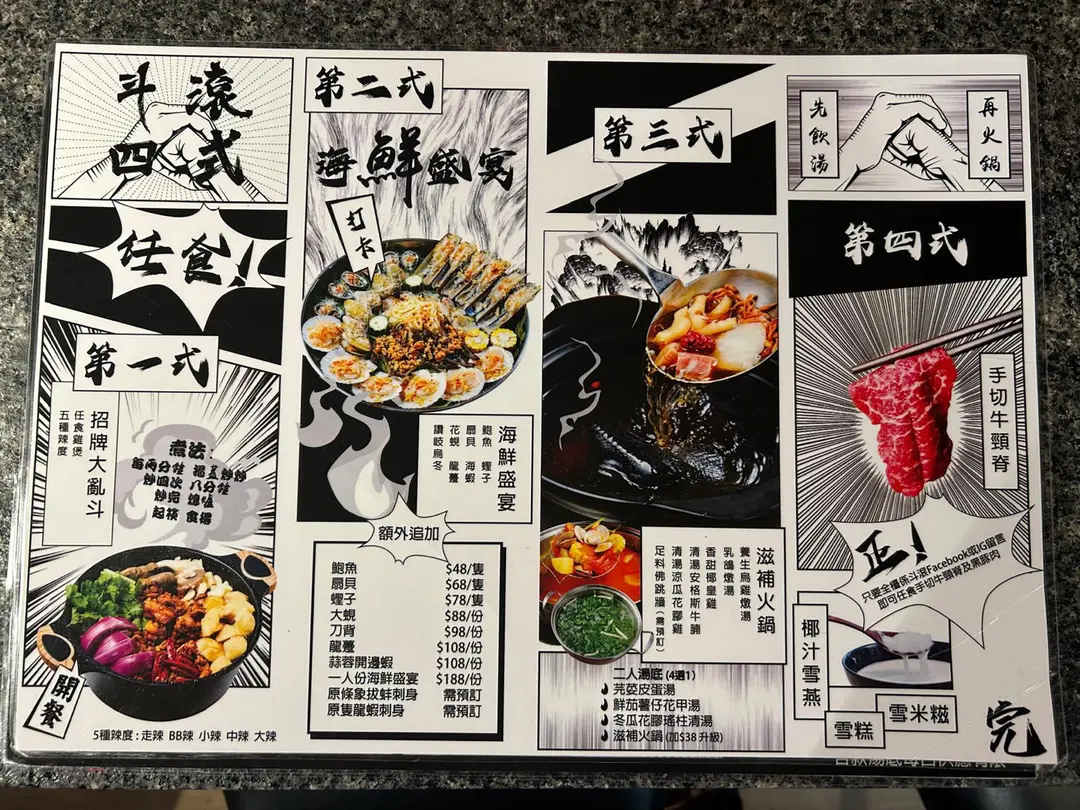 滾
斗
式
四
任食！
第一式
招牌大亂斗
任食雞煲
五種辣度
煮法：
每兩分鐘 揭蓋炒炒
炒四次 八分鐘
炒完 熄爐
起筷 食得
開餐
5種辣度 : 走辣 BB辣 小辣 中辣 大辣
第二式
海鮮盛宴
打卡
海鮮盛宴
鮑魚 蟶子
扇貝 海蝦
花蜆 龍躉
讚岐烏冬
額外追加
鮑魚 $48/隻
扇貝 $68/隻
蟶子 $78/隻
大蜆 $88/份
刀背 $98/份
龍躉 $108/份
蒜蓉開邊蝦 $108/份
一人份海鮮盛宴 $188/份
原條象拔蚌刺身 需預訂
原隻龍蝦刺身 需預訂
第三式
滋補火鍋
養生烏雞燉湯
乳鴿燉湯
香甜椰皇雞
清湯安格斯牛腩
清湯涼瓜花膠雞
足料佛跳牆（需預訂）
二人湯底 (4選1)
芫荽皮蛋湯
鮮茄薯仔花甲湯
冬瓜花膠瑤柱清湯
滋補火鍋 (加$38 升級)
先飲湯
再火鍋
第四式
手切牛頸脊
正！
只要全檯係斗滾Facebook或IG留言
即可任食手切牛頸脊及黑豚肉
椰汁雪燕
雪糕
雪米糍
完